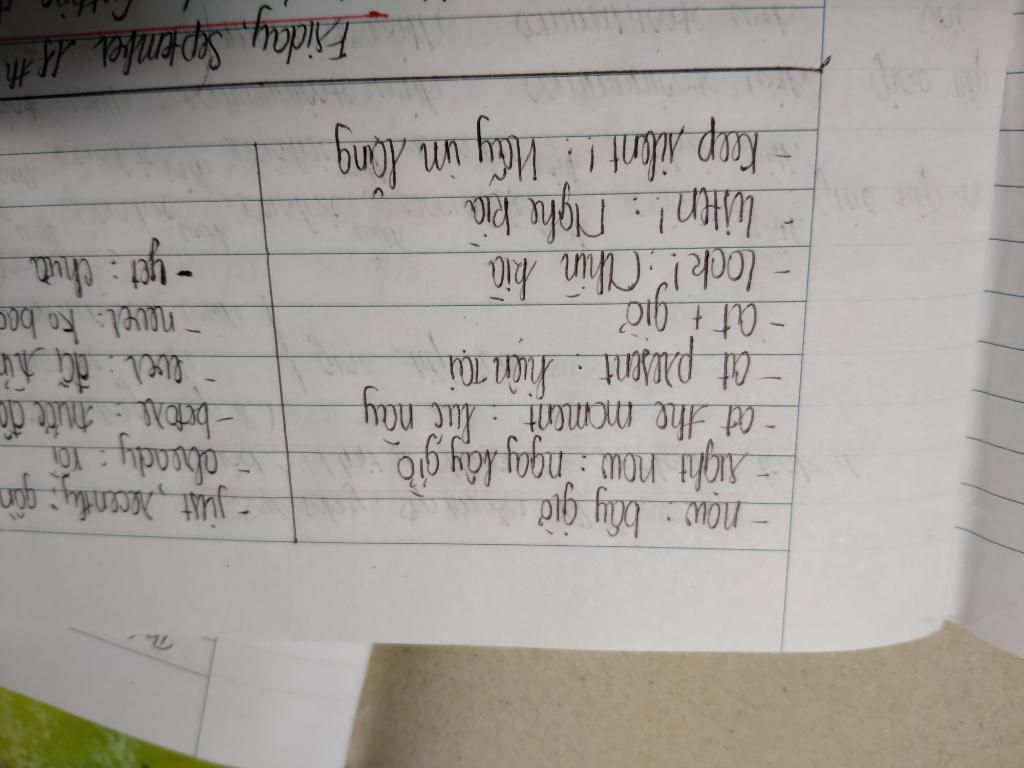 - now : bây giờ
- right now : ngay bây giờ
- at the moment : lúc này
- at present : hiện tại
- at + giờ
- Look! : Nhìn kìa
- Listen! : Nghe kìa
- Keep silent! : Hãy im lặng
- just, recently : gần
- already : rồi
- before : trước đó
- ever : đã
- never : ko bao
- yet : chưa
Friday, September 18th